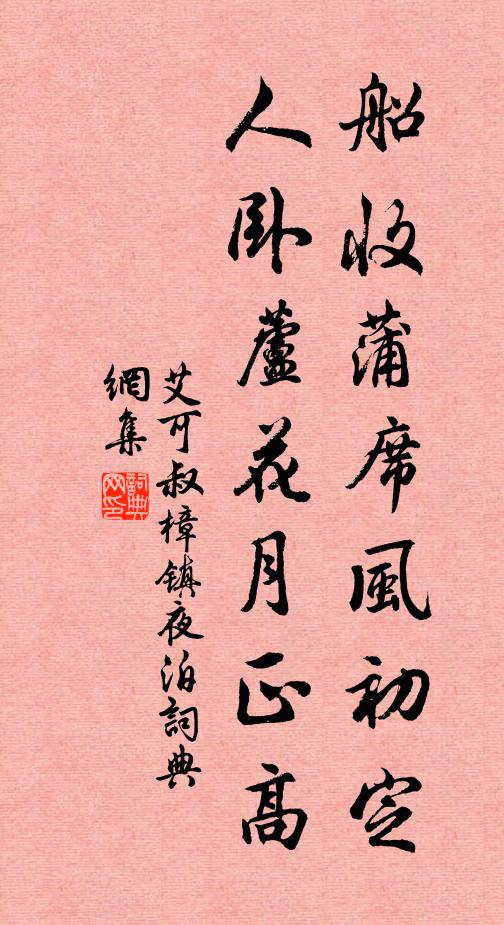 船收蒲席風初定
人臥蘆花月正高
艾可叔樟鎮夜泊詞典
網集
詞典
網印